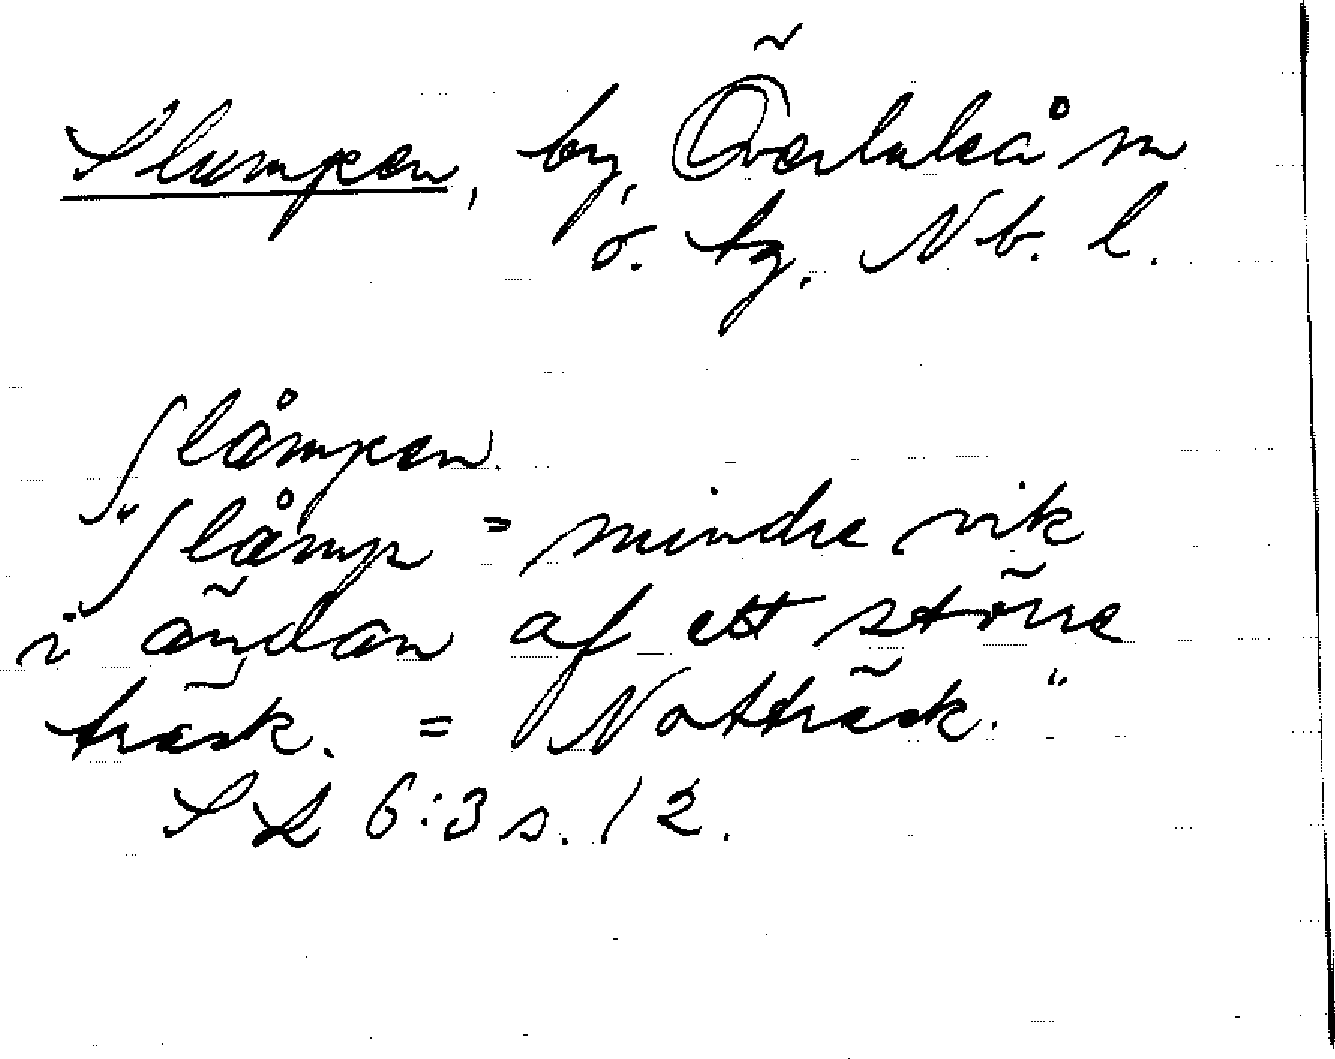 Slumpen, by, Överluleå sn
o. tg. Nb. l.
Slåmpen.
"Slåmp = mindre vik
i ändan af ett större
träsk. = Notträsk."
SL 6:3 s. 12.